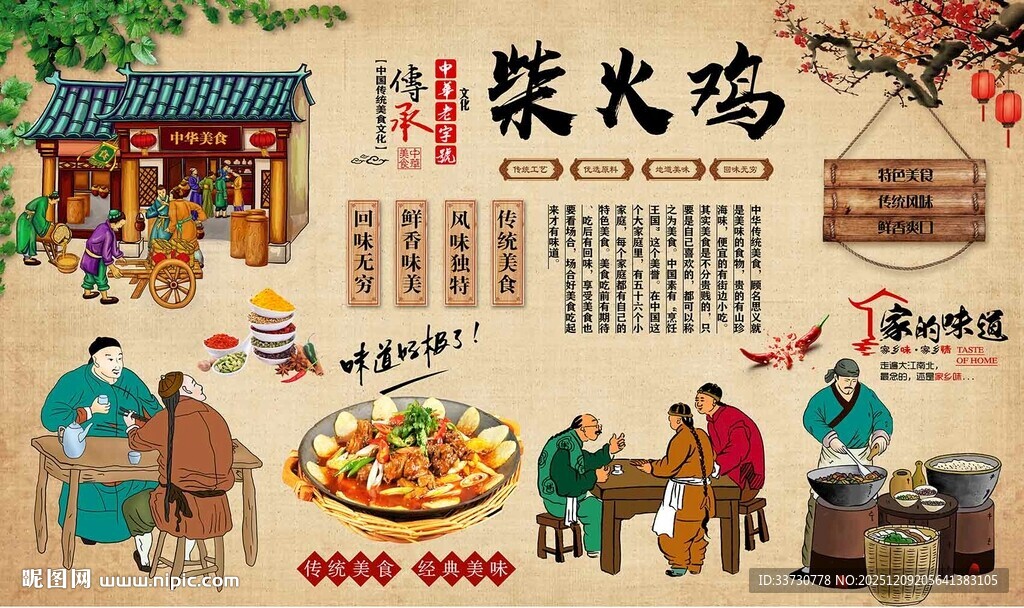 柴火鸡
文化
中华老字號
傳承
【中国传统美食文化】
中華美食
传统工艺
优选原料
地道美味
回味无穷
中华美食
特色美食
传统风味
鲜香爽口
传统美食
风味独特
鲜香味美
回味无穷
中华传统美食，顾名思义就
是美味的食物，贵的有山珍
海味，便宜的有街边小吃。
其实美食是不分贵贱的，只
要是自己喜欢的，都可以称
之为美食。中国素有“烹饪
王国”这个美誉。在中国这
个大家庭里，有五十六个小
家庭，每个家庭都有自己的
特色美食。美食吃前有期待
、吃后有回味，享受美食也
要看场合，场合好美食吃起
来才有味道。
家的味道
家乡味·家乡情
TASTE
OF HOME
走遍大江南北，
最念的，还是家乡味...
味道好极了！
传统美食 经典美味
昵图网 www.nipic.com
ID:33730778 NO:20251209205641383105